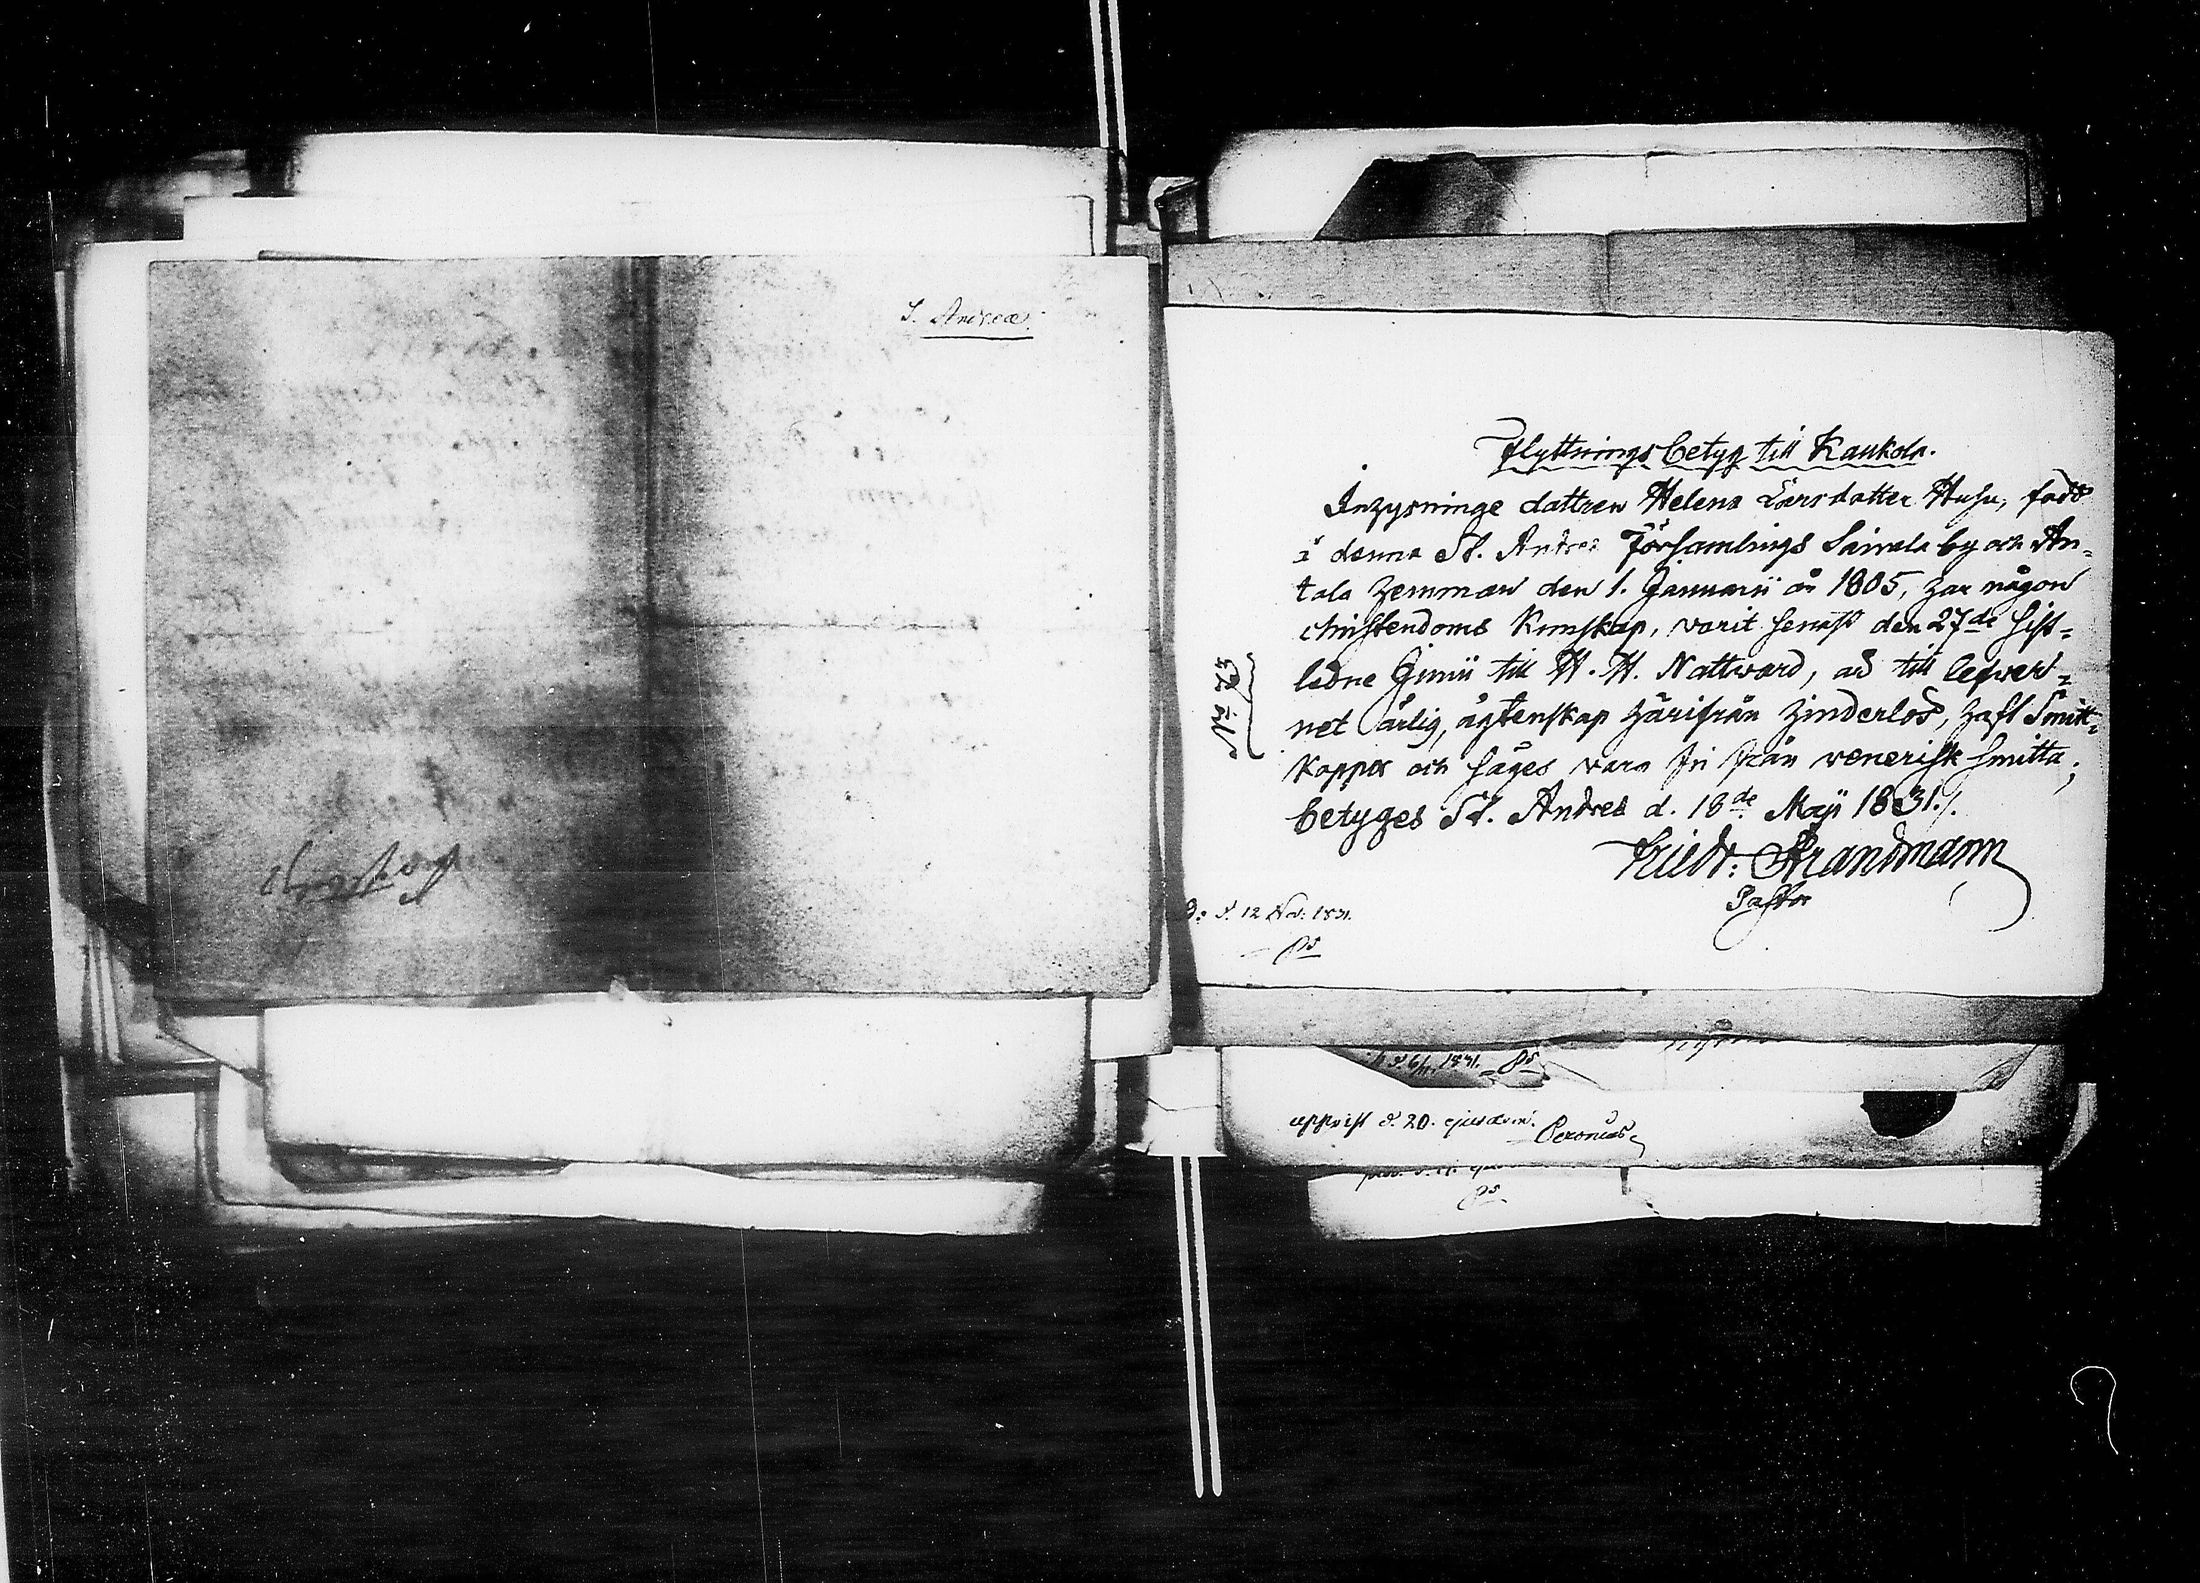 S. Andreæ.
Flyttnings betyg till Kaukola.
Inhysninge dottren Helena Larsdotter Husu, född
i denna St. Andreæ Församlings Sairala by och An-
tala hemman den 1. Januarii år 1805, har någon
christendoms Kunskap, varit senast den 27de sist-
ledne Junii till H. H. Nattvard, är till lefver-
net ärlig, ägtenskap härifrån hinderlös, haft Smitt-
koppor och säges vara fri från venerisk smitta;
betyges St. Andreæ d. 18de Maji 1831./.
Friedr: Strandmann
Pastor
No 73
d. 12 Nov: 1831.
ps
d. 6/11. 1831. ps
uppvist d. 20. ejusdem.
Peronius
ps